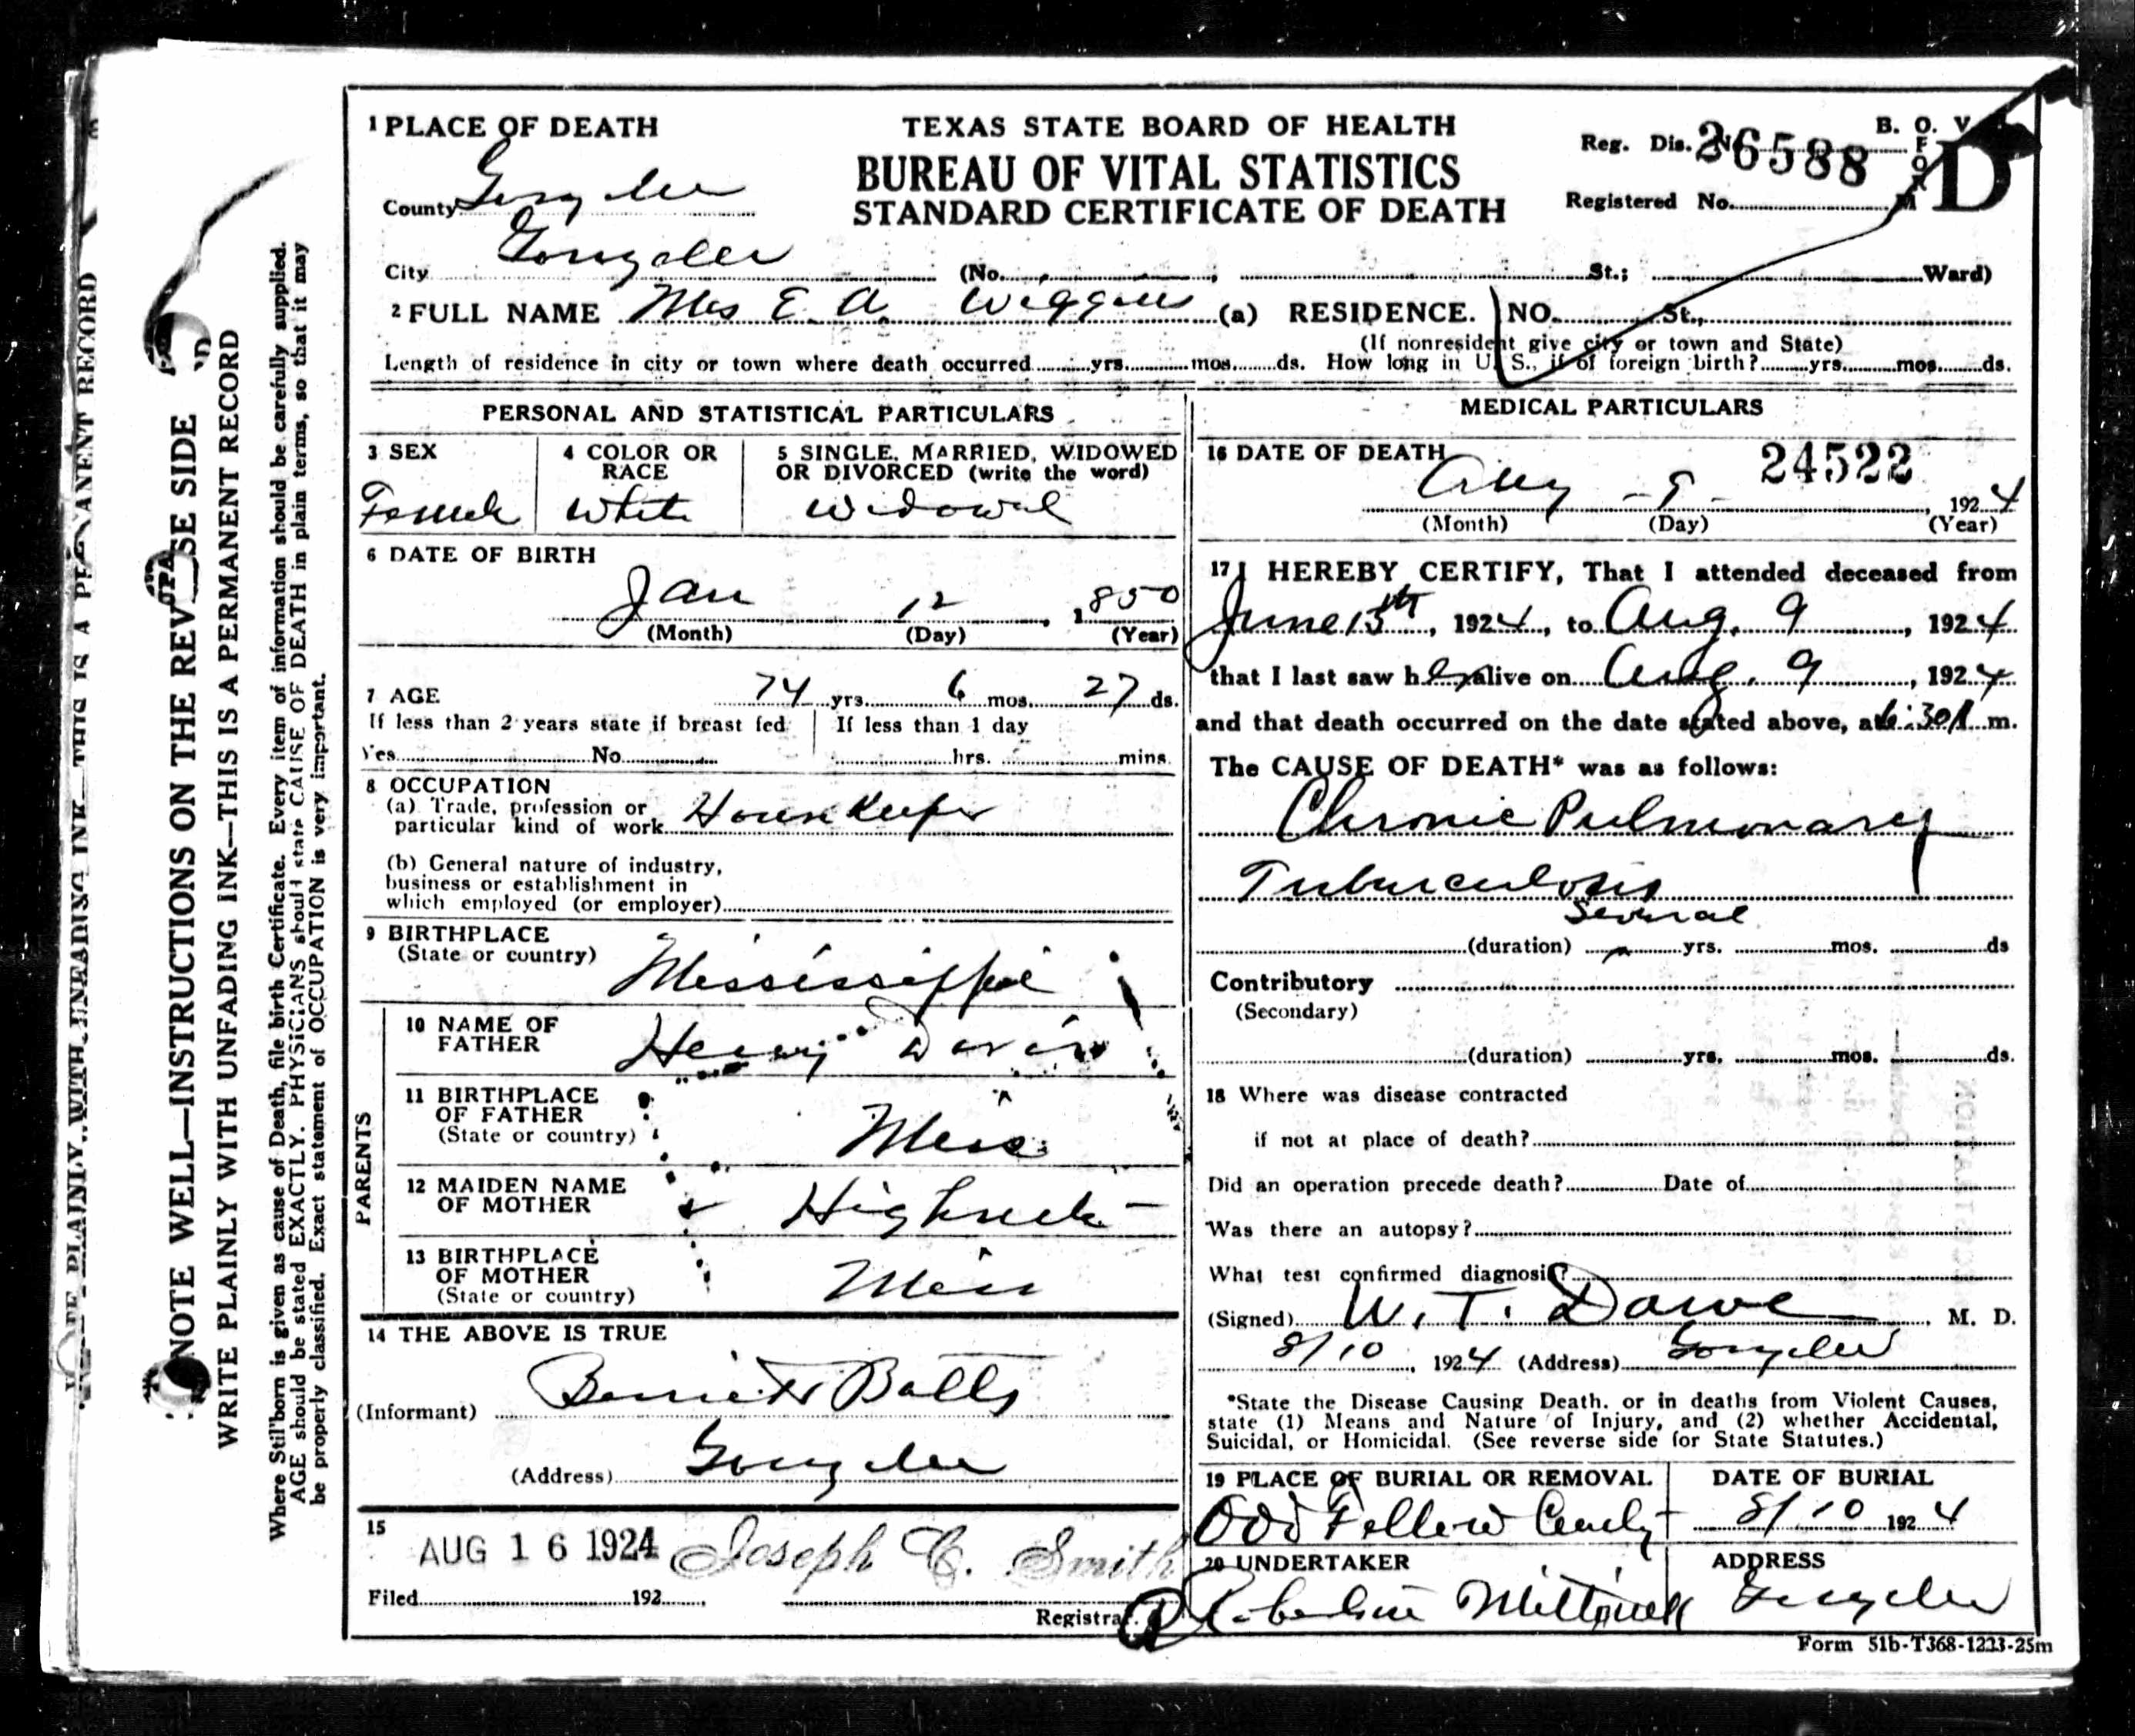 1 PLACE OF DEATH
TEXAS STATE BOARD OF HEALTH
BUREAU OF VITAL STATISTICS
STANDARD CERTIFICATE OF DEATH
B. O. V.
FORM D
Reg. Dis. 26588
Registered No.
County Gonzales
City Gonzales (No. St.; Ward)
2 FULL NAME Mrs E. A. (a) RESIDENCE. NO. St.,
(If nonresident give city or town and State)
Length of residence in city or town where death occurred yrs. mos. ds. How long in U. S., if of foreign birth? yrs. mos. ds.
PERSONAL AND STATISTICAL PARTICULARS
3 SEX
Female
4 COLOR OR RACE
White
5 SINGLE, MARRIED, WIDOWED
OR DIVORCED (write the word)
Widowed
6 DATE OF BIRTH
Jan 12, 1850
(Month) (Day) (Year)
7 AGE 74 yrs. 6 mos. 27 ds.
If less than 2 years state if breast fed
Yes No
If less than 1 day
hrs. mins.
8 OCCUPATION
(a) Trade, profession or
particular kind of work Housekeeper
(b) General nature of industry,
business or establishment in
which employed (or employer)
9 BIRTHPLACE
(State or country)
Mississippi
PARENTS
10 NAME OF
FATHER
Henry Davis
11 BIRTHPLACE
OF FATHER
(State or country)
Miss
12 MAIDEN NAME
OF MOTHER
13 BIRTHPLACE
OF MOTHER
(State or country)
Miss
14 THE ABOVE IS TRUE
(Informant) Batts
(Address) Gonzales
15
AUG 16 1924 Joseph C. Smith
Filed 192 ,
Registrar.
MEDICAL PARTICULARS
16 DATE OF DEATH 24522
Aug - 9 - , 1924
(Month) (Day) (Year)
17 I HEREBY CERTIFY, That I attended deceased from
June 15th, 1924, to Aug. 9, 1924
that I last saw her alive on Aug. 9, 1924
and that death occurred on the date stated above, at 6:30 m.
The CAUSE OF DEATH* was as follows:
Chronic Pulmonary
Tuburculosis
several
(duration) yrs. mos. ds
Contributory
(Secondary)
(duration) yrs. mos. ds.
18 Where was disease contracted
if not at place of death?
Did an operation precede death? Date of
Was there an autopsy?
What test confirmed diagnosis?
(Signed) W. T. Dawe, M. D.
8/10, 1924 (Address) Gonzales
*State the Disease Causing Death, or in deaths from Violent Causes,
state (1) Means and Nature of Injury, and (2) whether Accidental,
Suicidal, or Homicidal. (See reverse side for State Statutes.)
19 PLACE OF BURIAL OR REMOVAL
Odd Fellow
DATE OF BURIAL
8/10 1924
20 UNDERTAKER
ADDRESS
Gonzales
Form 51b-T368-1223-25m
NOTE WELL—INSTRUCTIONS ON THE REVERSE SIDE
WRITE PLAINLY WITH UNFADING INK—THIS IS A PERMANENT RECORD
Where Stillborn is given as cause of Death, file birth Certificate. Every item of information should be carefully supplied.
AGE should be stated EXACTLY. PHYSICIANS should state CAUSE OF DEATH in plain terms, so that it may
be properly classified. Exact statement of OCCUPATION is very important.